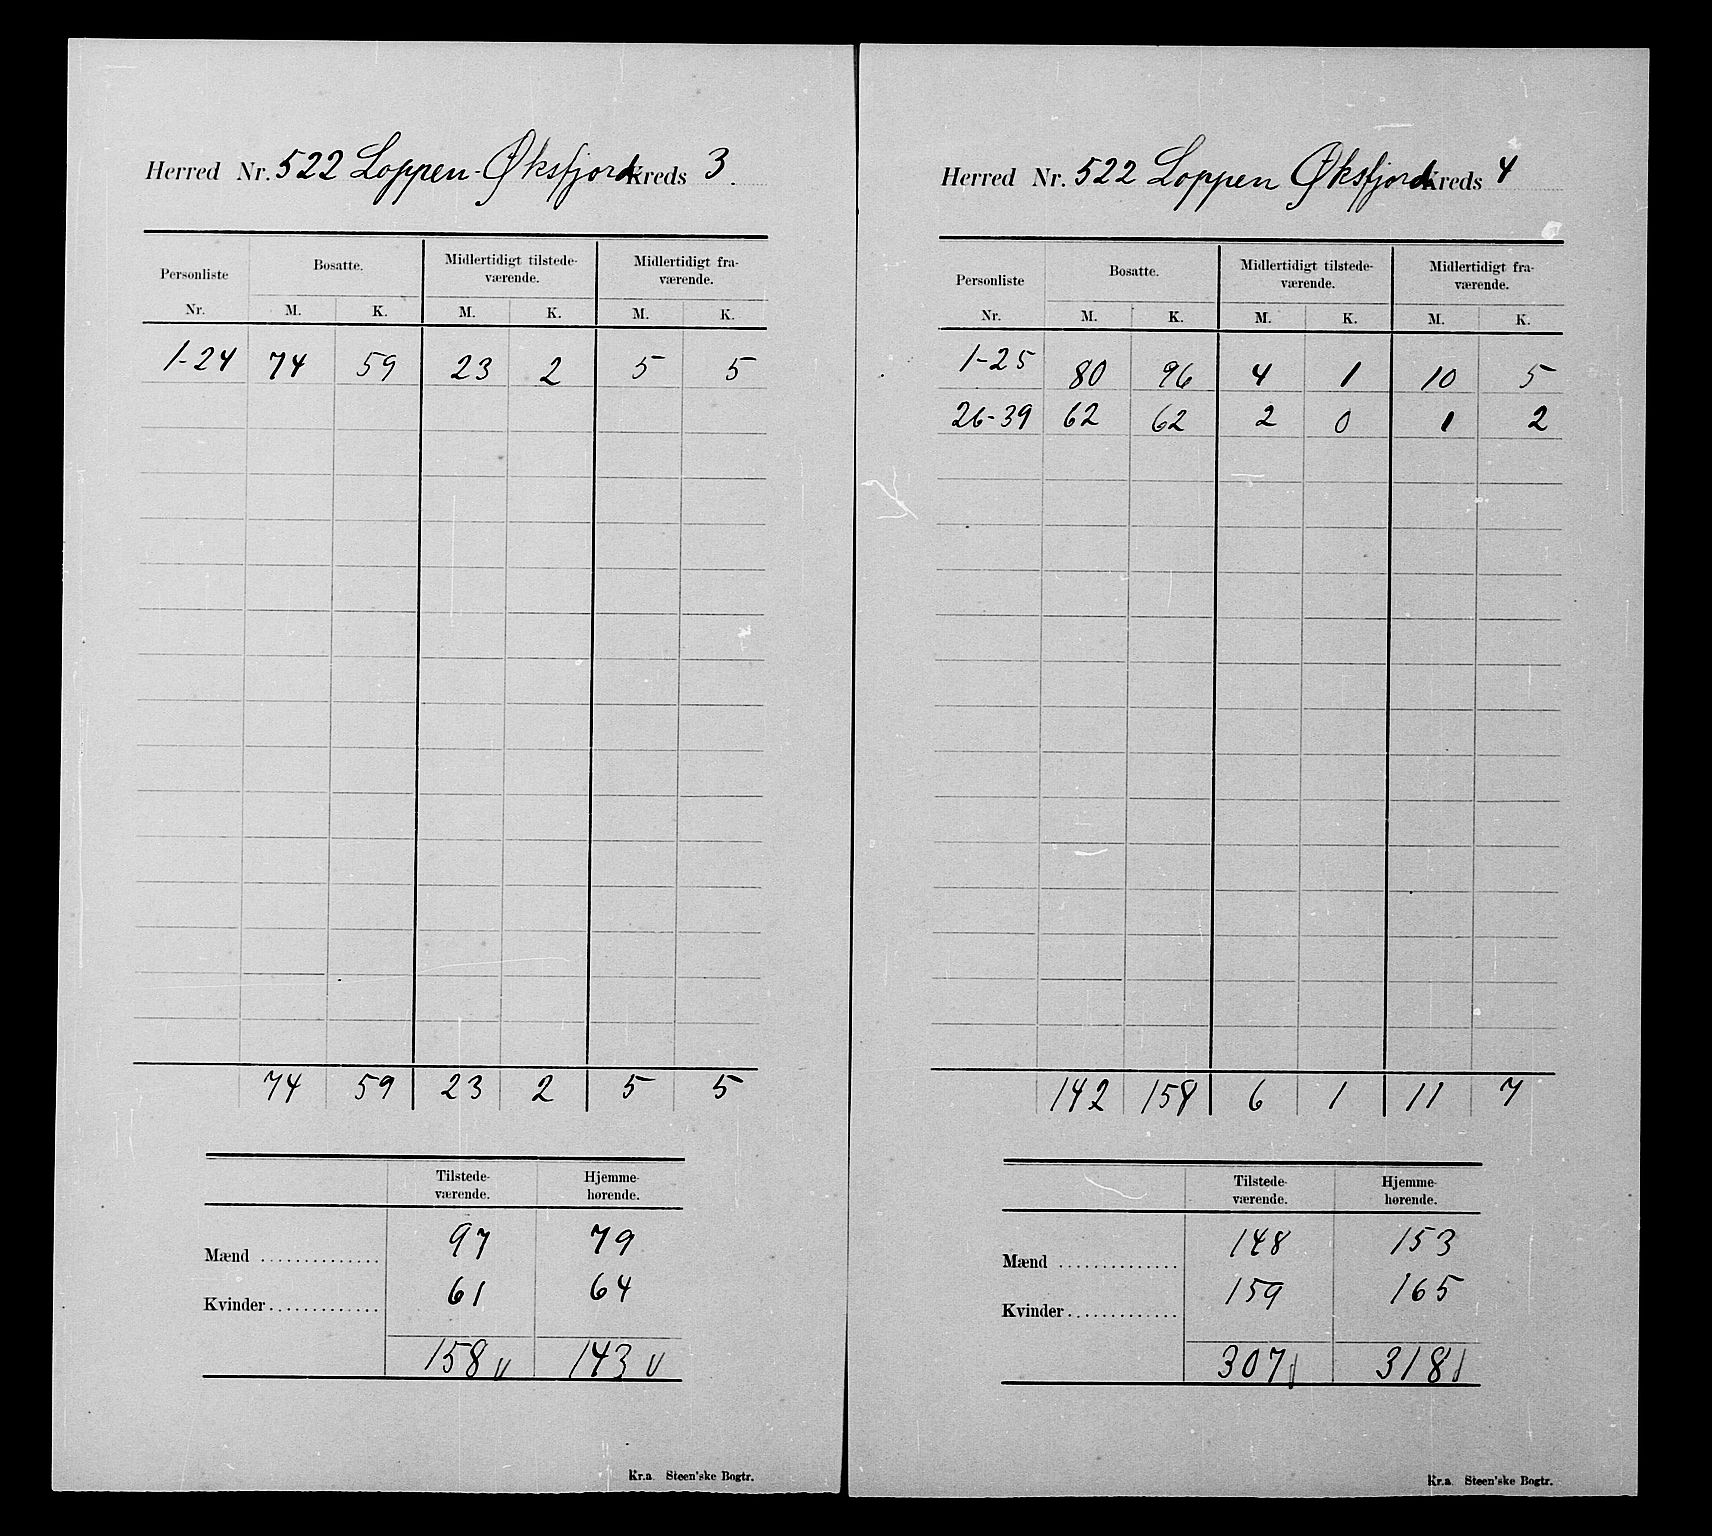 Herred Nr. 522 Loppen - Øksfjord Kreds 3.
Personliste Bosatte. Midlertidigt tilstede- Midlertidigt fra-
værende. værende.
Nr. M. K. M. K. M. K.
1-24 74 59 23 2 5 5
74 59 23 2 5 5
Tilstede- Hjemme-
værende. hørende.
Mænd .............. 97 79
Kvinder ............. 61 64
158 143
Kr.a. Steen'ske Bogtr.
Herred Nr. 522 Loppen Øksfjord Kreds 4
Personliste Bosatte. Midlertidigt tilstede- Midlertidigt fra-
værende. værende.
Nr. M. K. M. K. M. K.
1-25 80 96 4 1 10 5
26-39 62 62 2 0 1 2
142 158 6 1 11 7
Tilstede- Hjemme-
værende. hørende.
Mænd .............. 148 153
Kvinder ............. 159 165
307 318
Kr.a. Steen'ske Bogtr.